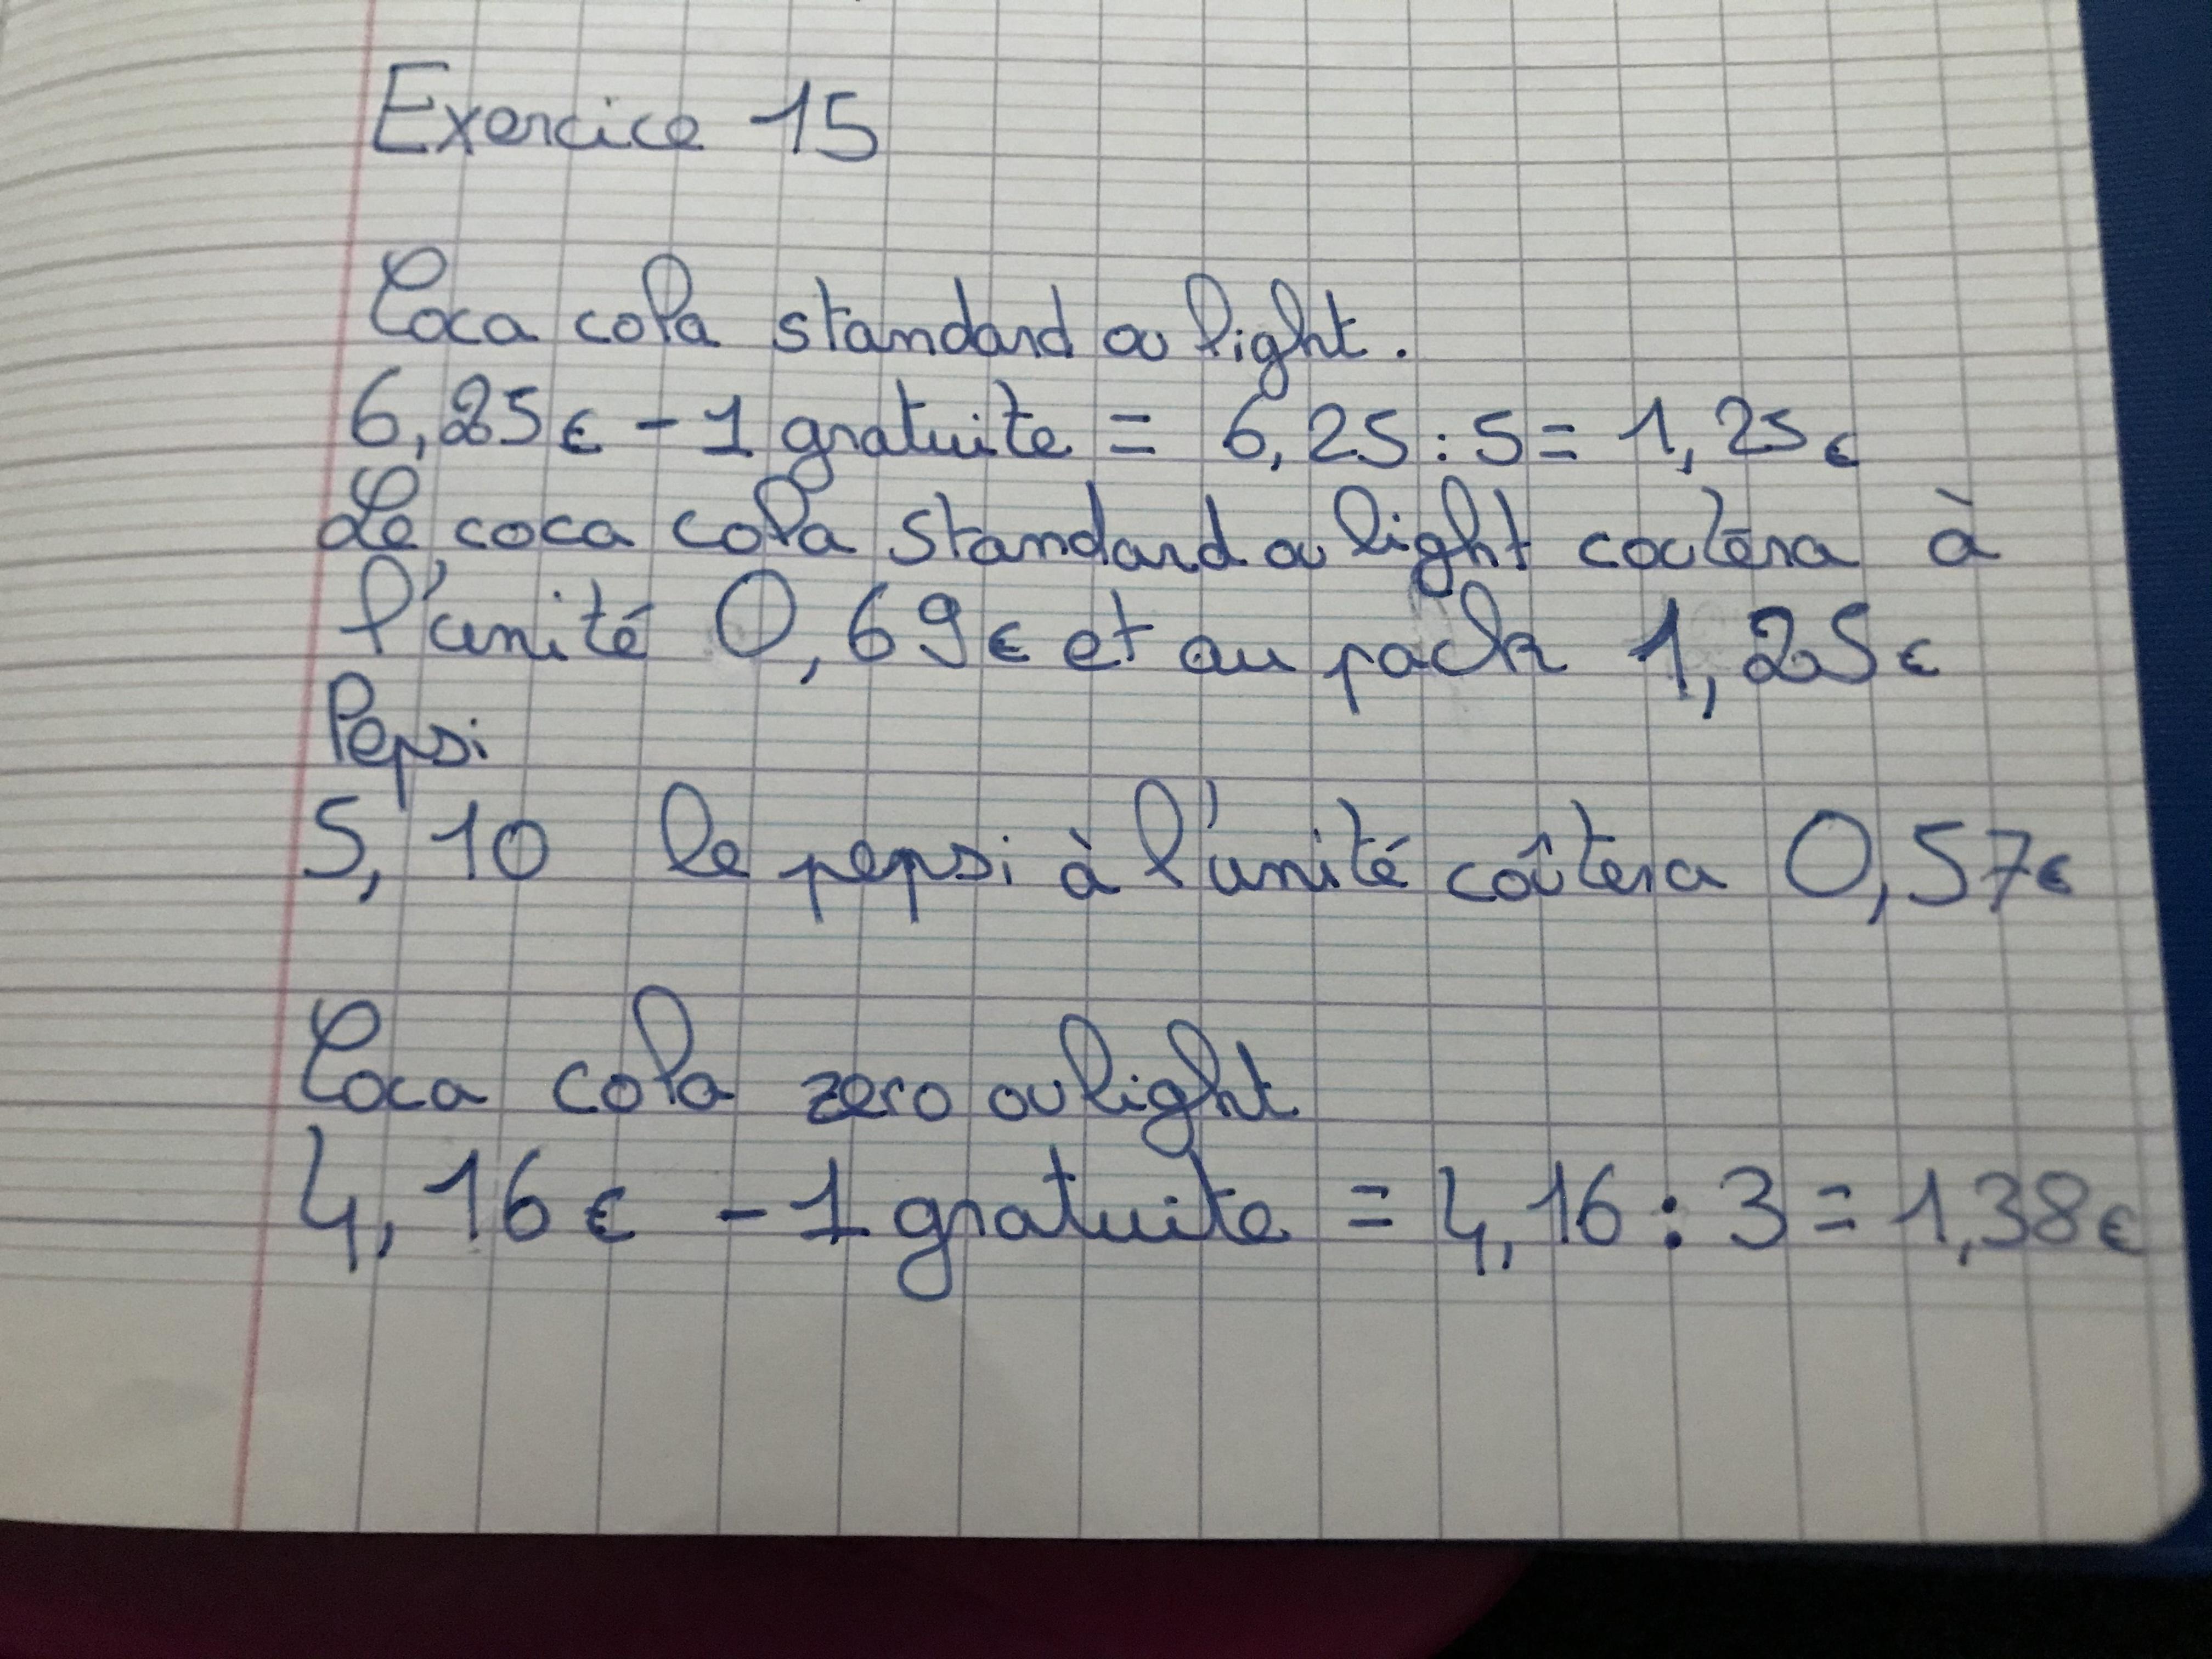 Exercice 15
Coca cola standard ou light.
6,25€ - 1 gratuite = 6,25 : 5 = 1,25€
Le coca cola standard ou light coutera à
l'unité 0,69€ et au pack 1,25€
Pepsi
5,10 le pepsi à l'unité coûtera 0,57€
Coca cola zero ou light
4,16€ - 1 gratuite = 4,16 : 3 = 1,38€